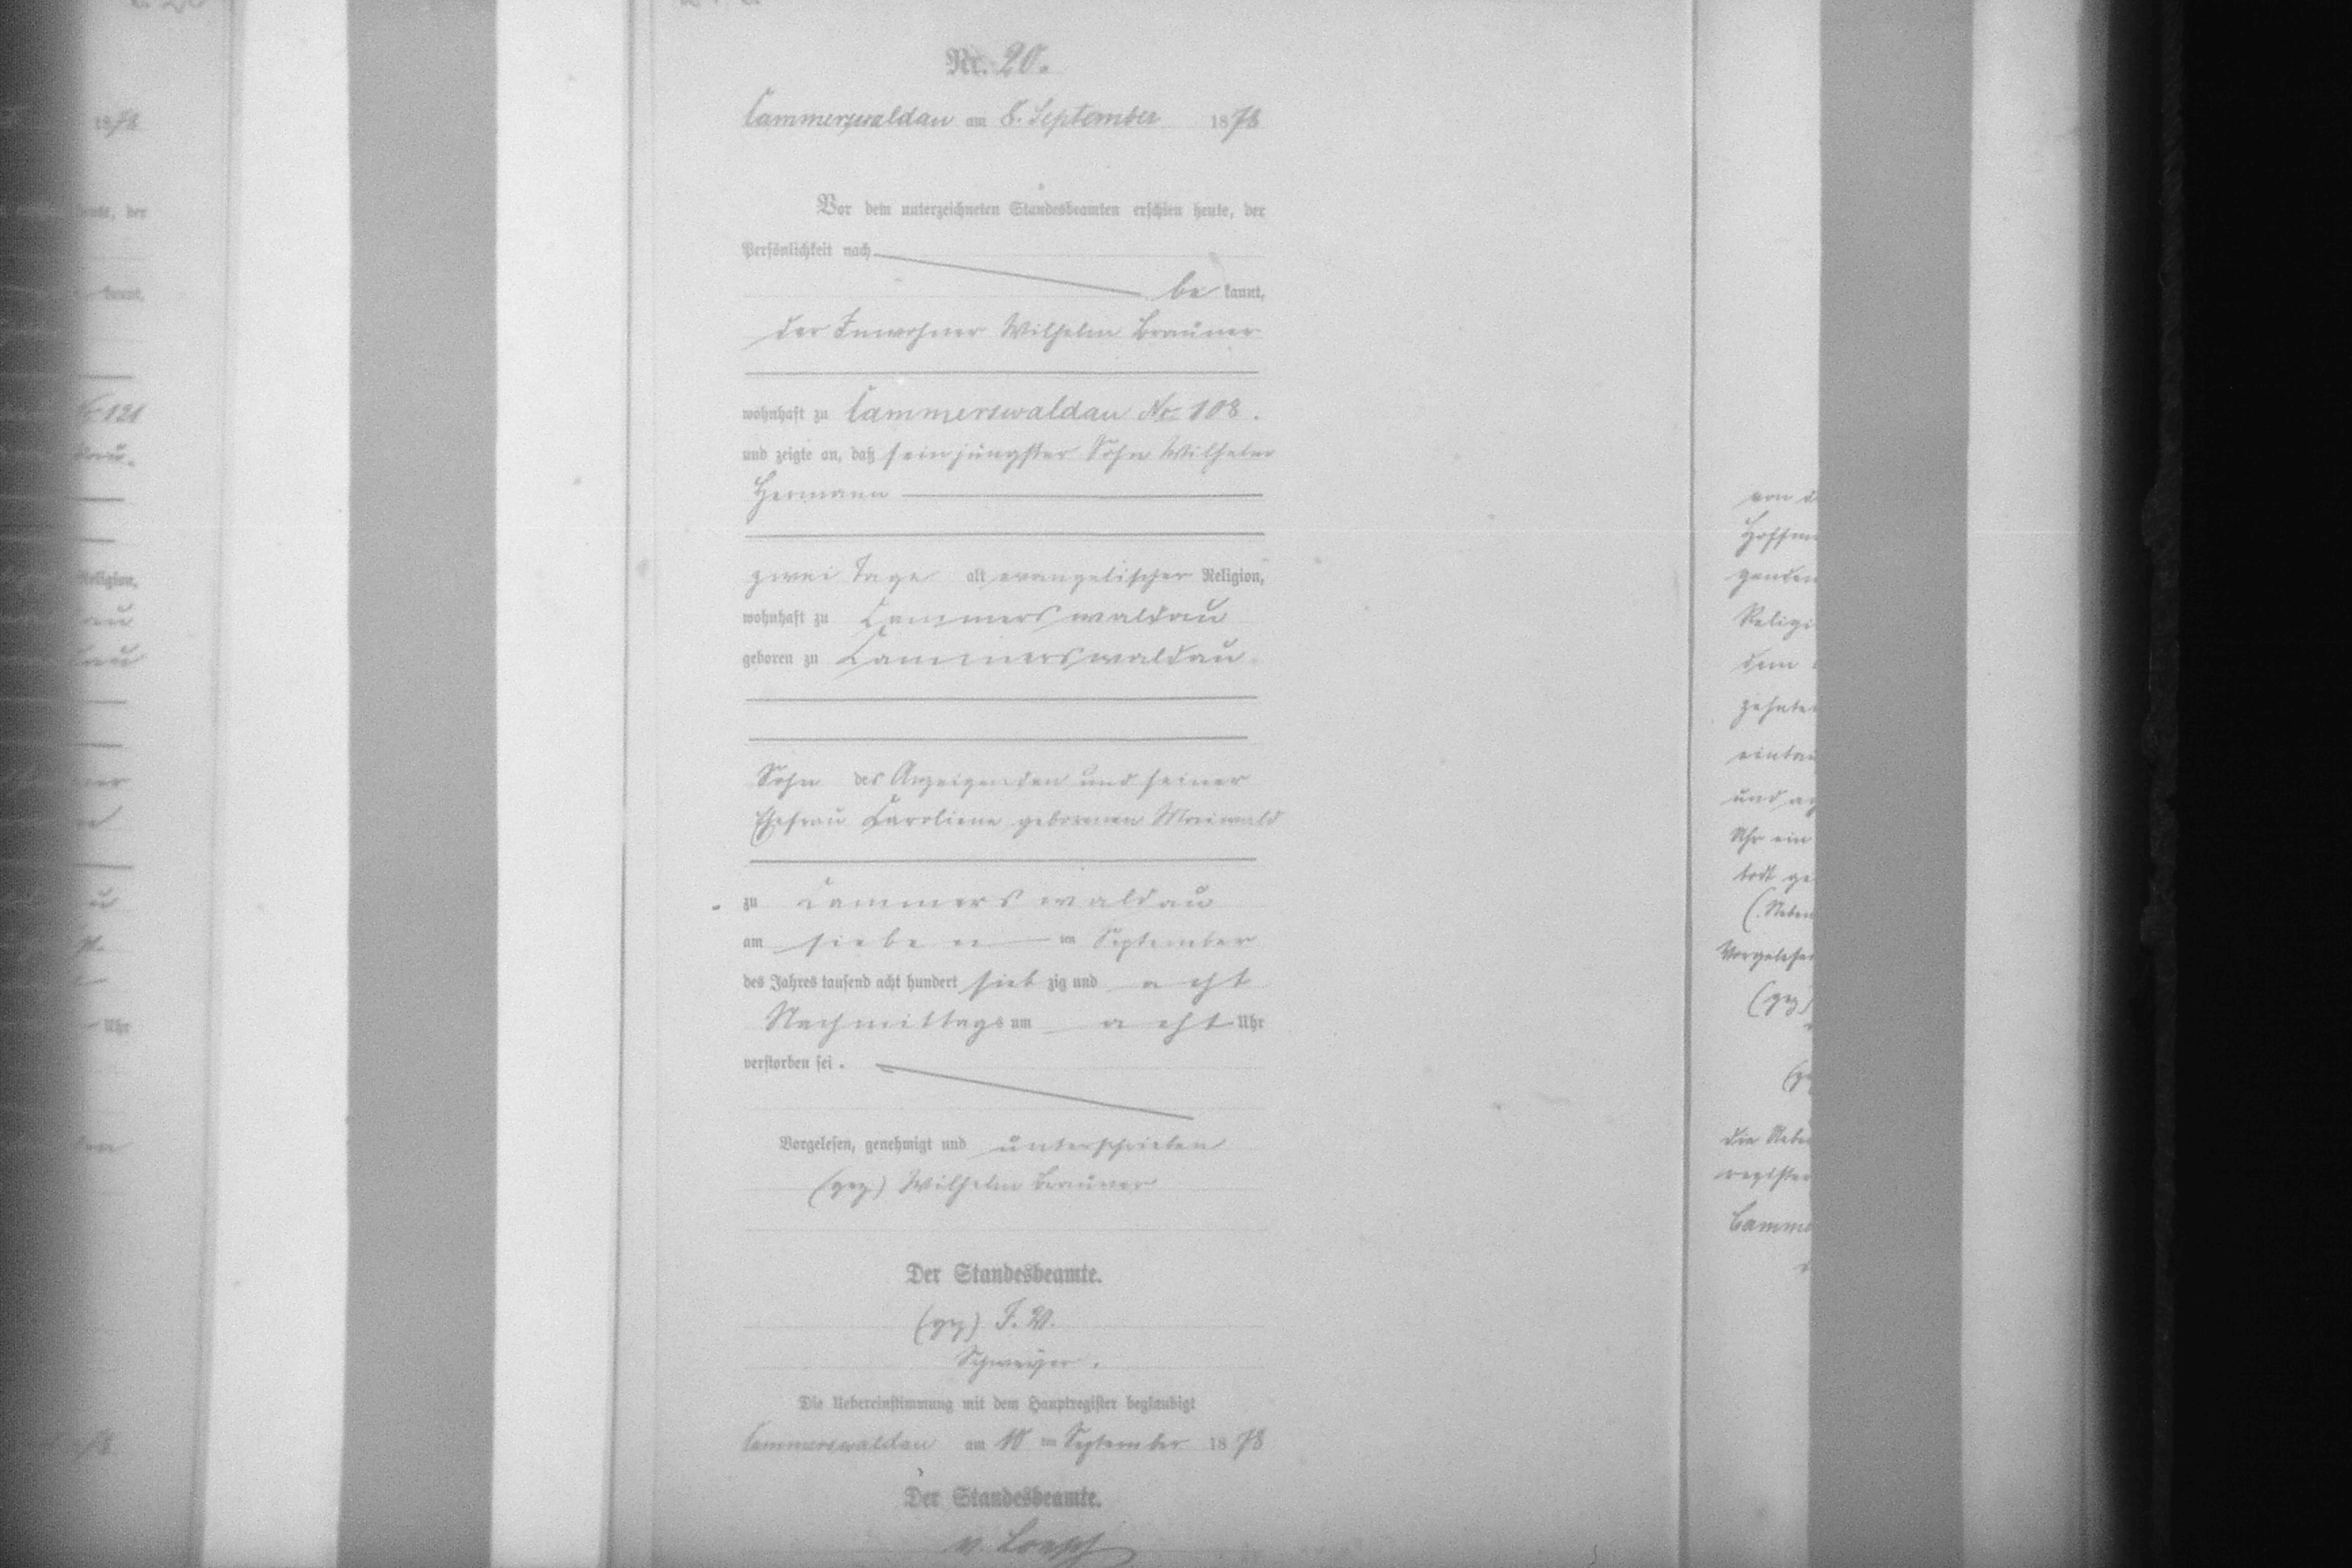 Nr. 20.
Cammerswaldau am 8. September 1878
Vor dem unterzeichneten Standesbeamten erschien heute, der
Persönlichkeit nach
be kannt,
der Inwohner Wilhelm Brauner
wohnhaft zu Cammerswaldau No 108.
und zeigte an, daß sein jüngster Sohn Wilhelm
Hermann
zwei Tage alt evangelischer Religion,
wohnhaft zu Cammerswaldau
geboren zu Cammerswaldau
Sohn des Anzeigenden und seiner
Ehefrau Caroline geborenen Maiwald
zu Cammerswaldau
am sieben ten September
des Jahres tausend acht hundert sieb zig und acht
Nachmittags um acht Uhr
verstorben sei.
Vorgelesen, genehmigt und unterschrieben
(gez) Wilhelm Brauner
Der Standesbeamte.
(gez) F. W.
Die Uebereinstimmung mit dem Hauptregister beglaubigt
Cammerswaldau am 10 ten September 1878
Der Standesbeamte.
1878
heute, der
kannt,
No 121
Religion,
Uhr
von d
Hoffm
Religi
dem
zehnte
und
Uhr ein
todt ge
Vorgelese
(gez)
die Uebe
register
Camme